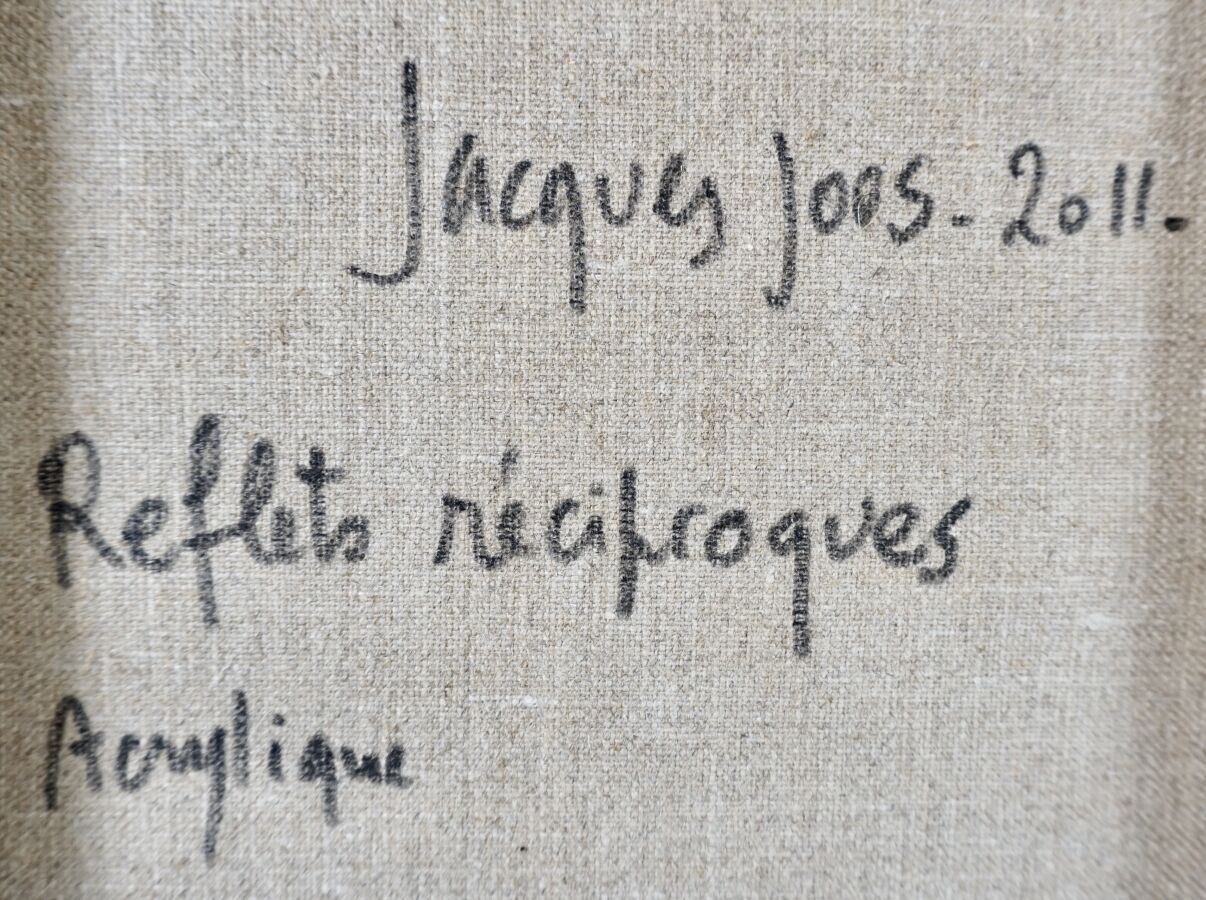 Jacques Joos - 2011.
Reflets réciproques
Acrylique